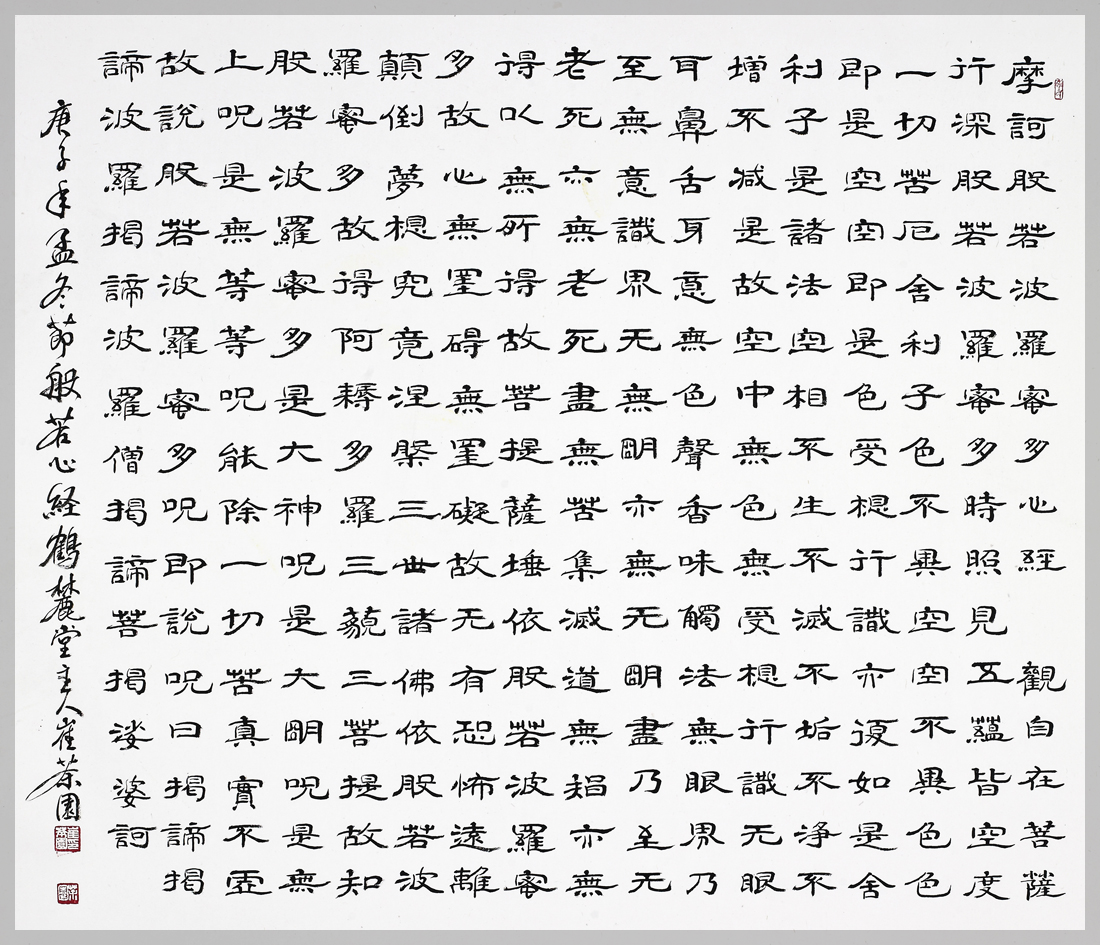 摩訶般若波羅蜜多心經 觀自在菩薩
行深般若波羅蜜多時照見五蘊皆空度
一切苦厄舍利子色不異空空不異色色
即是空空即是色受想行識亦復如是舍
利子是諸法空相不生不滅不垢不淨不
增不减是故空中無色無受想行識无眼
耳鼻舌身意無色聲香味觸法無眼界乃
至無意識界无無明亦無无明盡乃至无
老死亦無老死盡無苦集滅道無智亦無
得以無所得故菩提薩埵依般若波羅蜜
多故心無罣碍無罣礙故无有恐怖遠離
顛倒夢想究竟涅槃三世諸佛依般若波
羅蜜多故得阿耨多羅三藐三菩提故知
般若波羅蜜多是大神呪是大明呪是無
上呪是無等等呪能除一切苦真實不虛
故說般若波羅蜜多呪即說呪曰揭諦揭
諦波羅揭諦波羅僧揭諦菩提娑婆訶
庚子年孟冬節般若心経鶴麓堂主人崔茶園